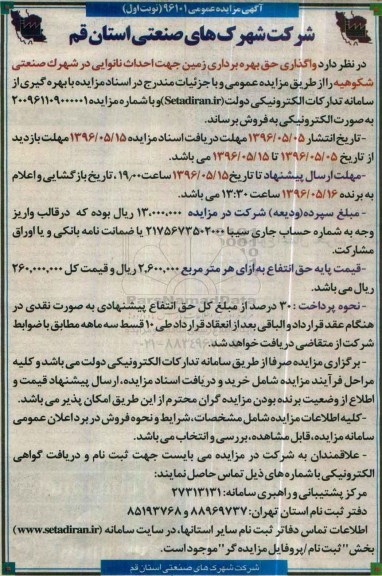 آگهی مزایده عمومی ۹۶۱۰۱ (نوبت اول)
شرکت شهرک های صنعتی استان قم
در نظر دارد واگذاری حق بهره برداری زمین جهت احداث نانوایی در شهرک صنعتی
شکوهیه را از طریق مزایده عمومی و با جزئیات مندرج در اسناد مزایده با بهره گیری از
سامانه تدارکات الکترونیکی دولت (Setadiran.ir) و با شماره مزایده ۲۰۰۹۶۱۱۰۹۰۰۰۰۰۱
به صورت الکترونیکی به فروش برساند.
-تاریخ انتشار ۱۳۹۶/۰۵/۰۵ مهلت دریافت اسناد مزایده ۱۳۹۶/۰۵/۱۵ مهلت بازدید
از تاریخ ۱۳۹۶/۰۵/۰۵ تا ۱۳۹۶/۰۵/۱۵ می باشد.
-مهلت ارسال پیشنهاد تا تاریخ ۱۳۹۶/۰۵/۱۵ ساعت ۱۹,۰۰، تاریخ بازگشایی و اعلام
به برنده ۱۳۹۶/۰۵/۱۶ ساعت ۱۳:۳۰ می باشد.
- مبلغ سپرده (ودیعه) شرکت در مزایده ۱۳,۰۰۰,۰۰۰ ریال بوده که درقالب واریز
وجه به شماره حساب جاری سیبا ۲۱۷۵۶۷۳۵۰۲۰۰۰ یا ضمانت نامه بانکی و یا اوراق
مشارکت.
-قیمت پایه حق انتفاع به ازای هر متر مربع ۲,۶۰۰,۰۰۰ ریال و قیمت کل ۲۶۰,۰۰۰,۰۰۰
ریال می باشد.
- نحوه پرداخت : ۳۰ درصد از مبلغ کل حق انتفاع پیشنهادی به صورت نقدی در
هنگام عقد قرارداد و الباقی بعد از انعقاد قرارداد طی ۱۰ قسط سه ماهه مطابق با ضوابط
شرکت از متقاضی دریافت خواهد شد.
- برگزاری مزایده صرفا از طریق سامانه تدارکات الکترونیکی دولت می باشد و کلیه
مراحل فرآیند مزایده شامل خرید و دریافت اسناد مزایده، ارسال پیشنهاد قیمت و
اطلاع از وضعیت برنده بودن مزایده گران محترم از این طریق امکان پذیر می باشد.
-کلیه اطلاعات مزایده شامل مشخصات، شرایط و نحوه فروش در برد اعلان عمومی
سامانه مزایده، قابل مشاهده، بررسی و انتخاب می باشد.
- علاقمندان به شرکت در مزایده می بایست جهت ثبت نام و دریافت گواهی
الکترونیکی با شماره های ذیل تماس حاصل نمایند:
مرکز پشتیبانی و راهبری سامانه: ۲۷۳۱۳۱۳۱
دفتر ثبت نام استان تهران: ۸۸۹۶۹۷۳۷ و ۸۵۱۹۳۷۶۸
اطلاعات تماس دفاتر ثبت نام سایر استانها، در سایت سامانه (www.setadiran.ir)
بخش "ثبت نام / پروفایل مزایده گر" موجود است.
شرکت شهرک های صنعتی استان قم